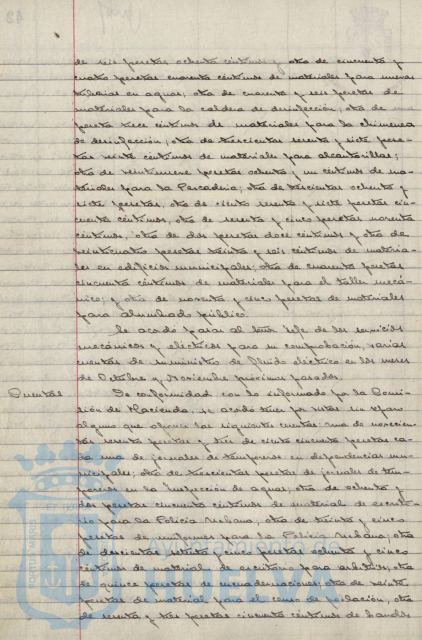 de seis pesetas ochenta céntimos y otra de cincuenta y
cuatro pesetas cuarenta céntimos de materiales para nuevas
tuberias en aguas; otra de cuarenta y seis pesetas de
materiales para la caldera de desinfección; otra de
peseta trece céntimos de materiales para la chimenea
de desinfección; otra de trescientas sesenta y siete pese-
tas veinte céntimos de materiales para alcantarillas;
otra de veintinueve pesetas ochenta y un céntimos de ma-
teriales para la Pescaderia; otra de trescientas ochenta y
siete pesetas, otra de ciento sesenta y siete pesetas cin-
cuenta céntimos, otra de sesenta y cinco pesetas noventa
céntimos, otra de dos pesetas doce céntimos y otra de
veinticuatro pesetas treinta y seis céntimos de materia-
les en edificios municipales; otra de cuarenta pesetas
cincuenta céntimos de materiales para el taller mecá-
nico; y otra de noventa y cinco pesetas de materiales
para alumbrado público.
Se acordó pasar al señor Jefe de los servicios
mecánicos y eléctricos para su comprobación, varias
cuentas de suministro de fluido eléctrico en los meses
de Octubre y Noviembre próximos pasados.
Cuentas
De conformidad con lo informado por la Comi-
sión de Hacienda, se acordó tener por vistas sin reparo
alguno que oponer las siguientes cuentas: una de novecien-
tas sesenta pesetas y tres de ciento cincuenta pesetas ca-
da una de jornales de temporeros en dependencias mu-
nicipales; otra de trescientas pesetas de jornales de tem-
poreros en la Inspección de aguas; otra de ochenta y
dos pesetas cincuenta céntimos de material de escrito-
rio para la Policia Urbana, otra de treinta y cinco
pesetas de uniformes para la Policia Urbana; otra
de doscientas setenta y cinco pesetas ochenta y cinco
céntimos de material de escritorio para arbitrios; otra
de quince pesetas de encuadernaciones; otra de veinte
pesetas de material para el censo de población, otra
de sesenta y tres pesetas cincuenta céntimos de bandos